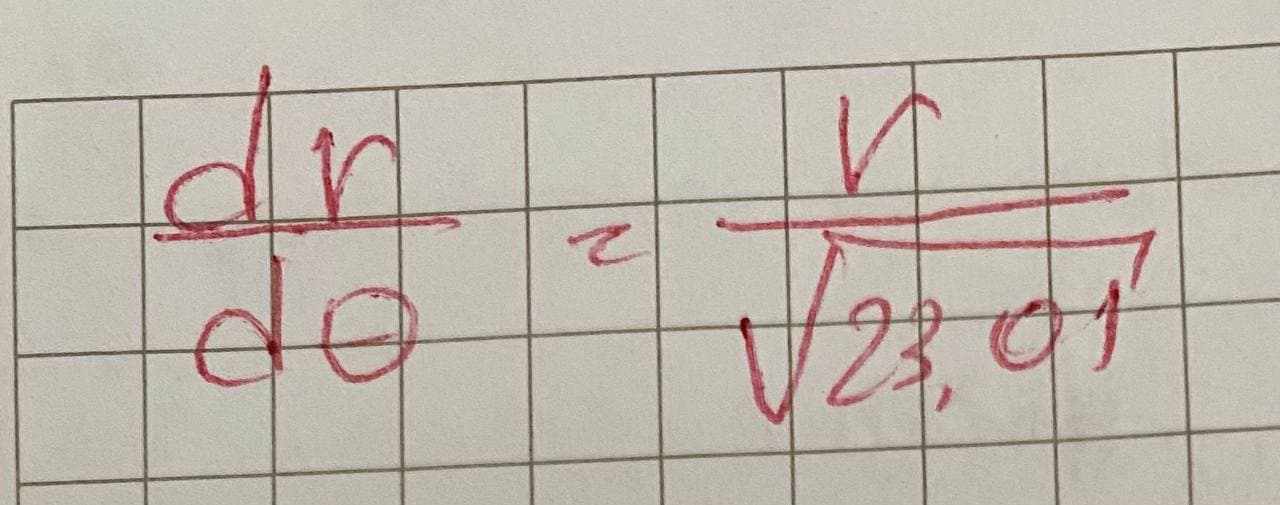 dr/dθ = r/√23,01